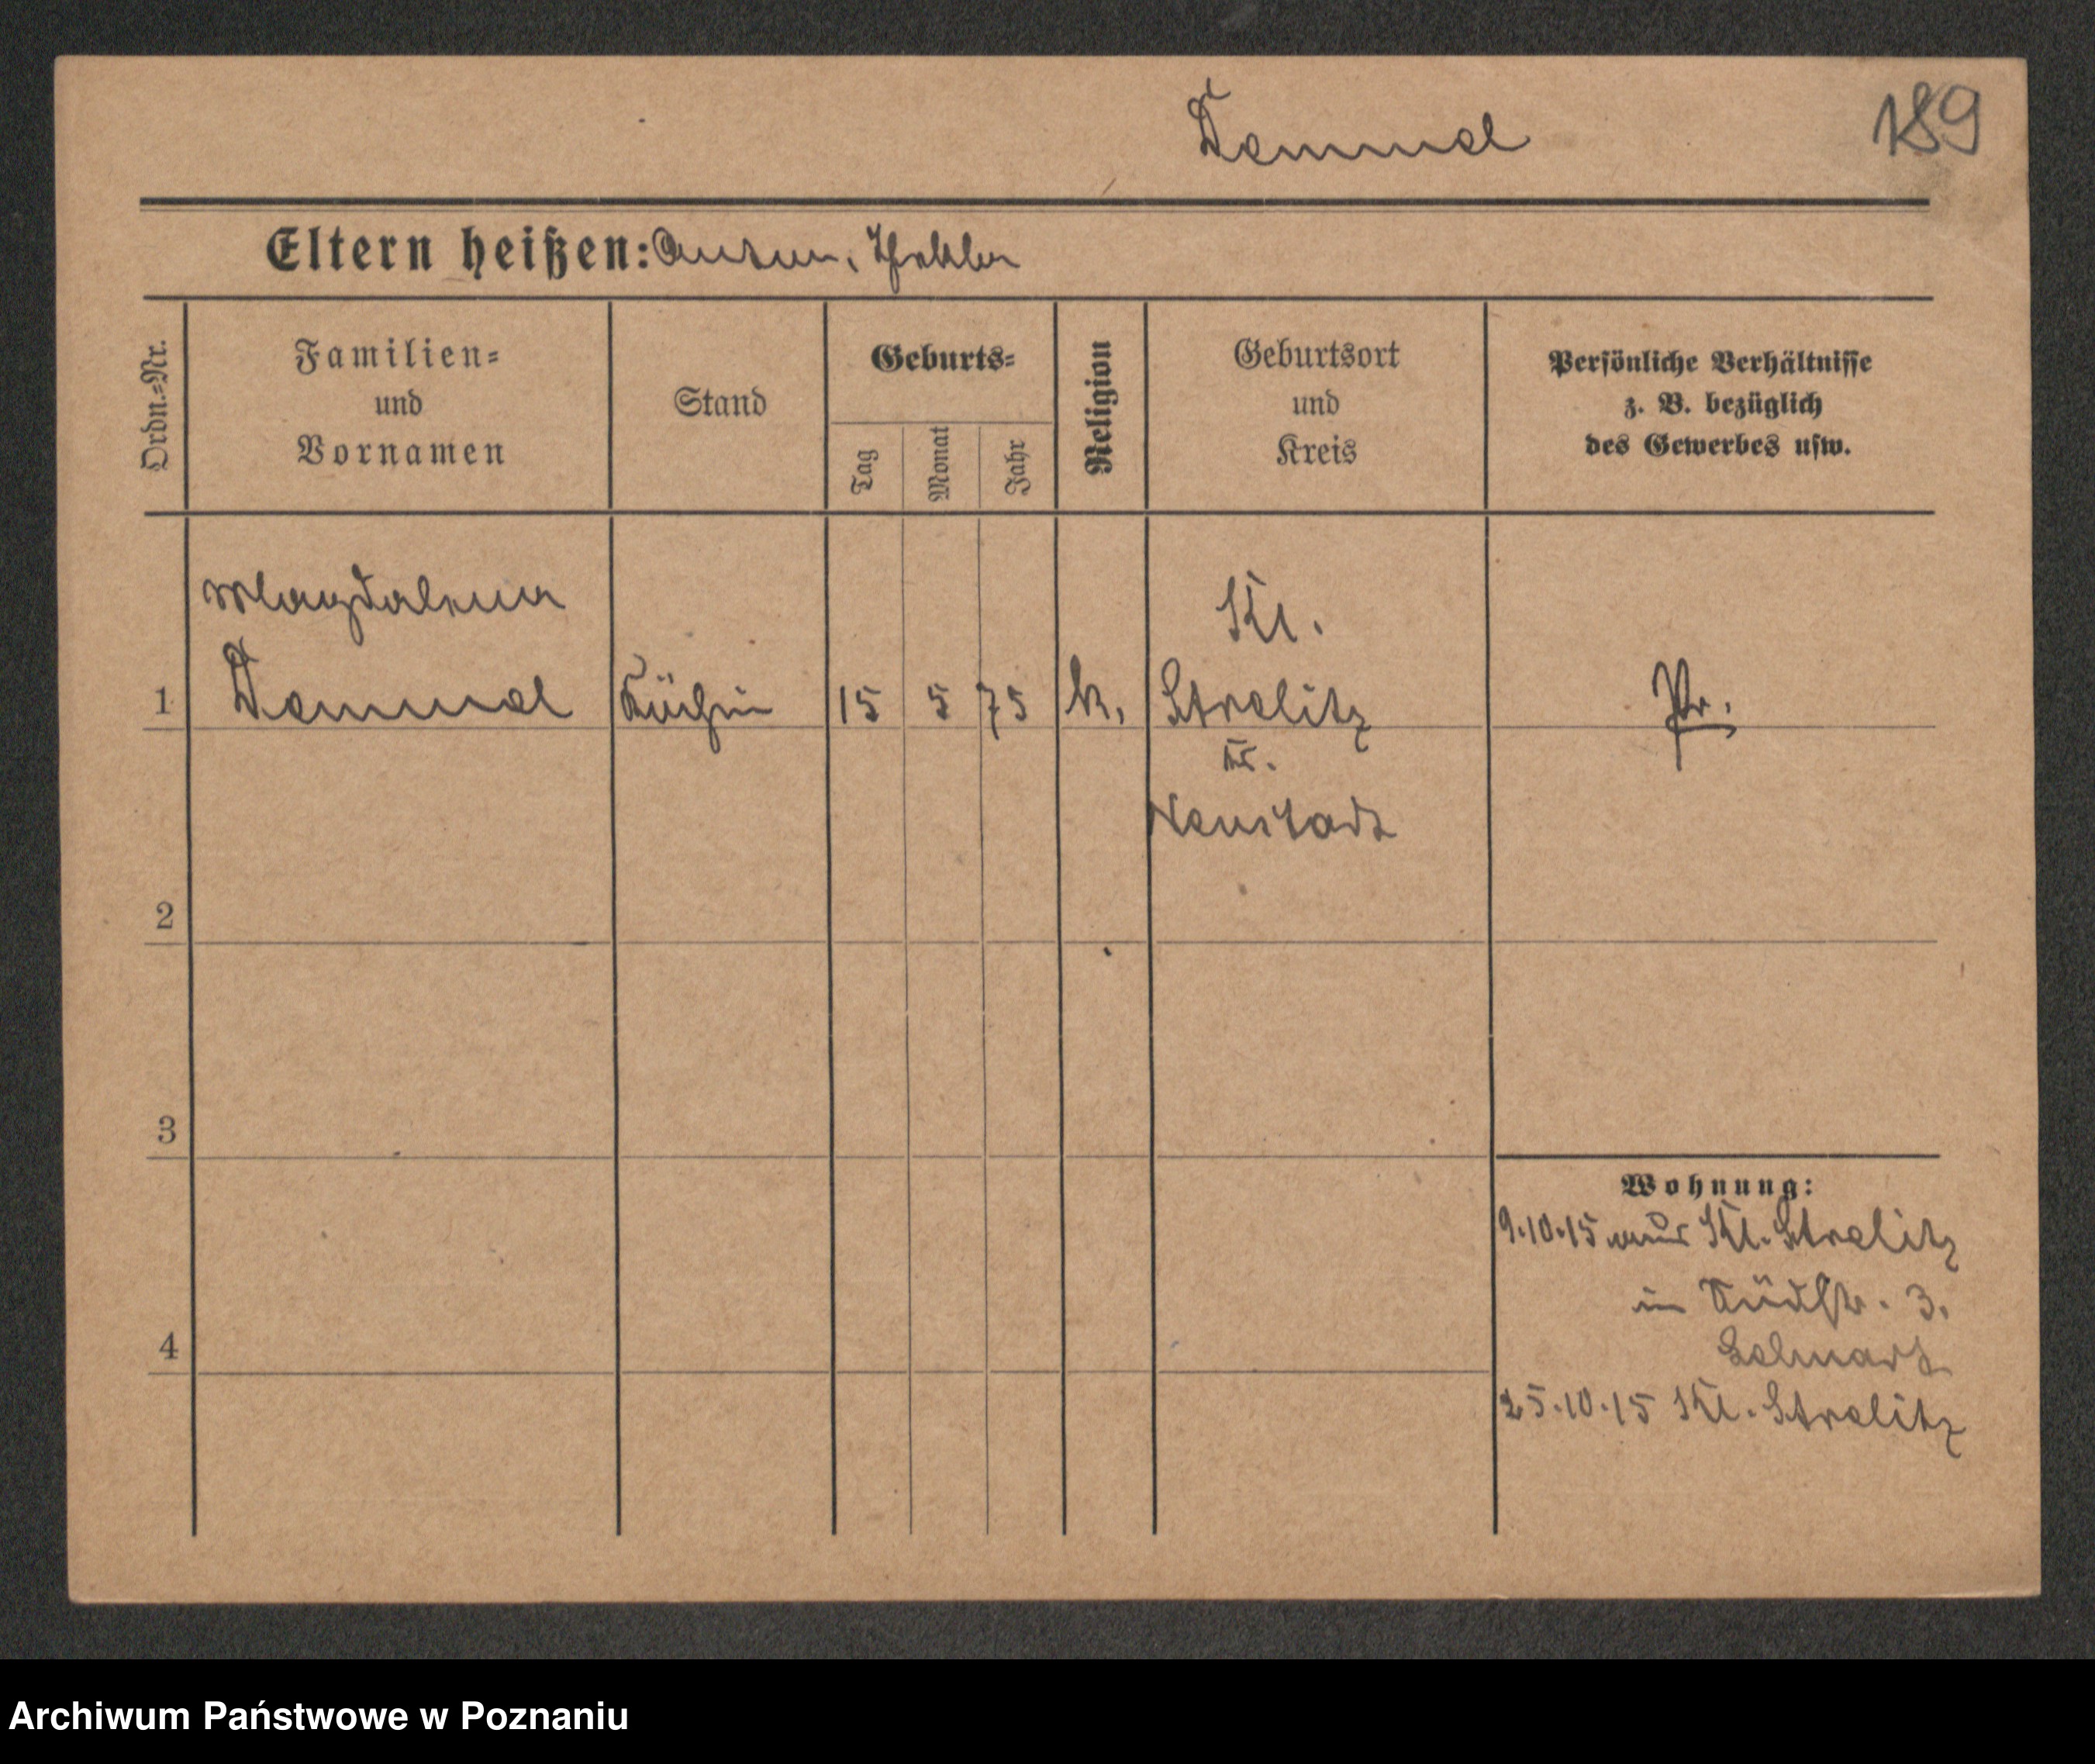 Demmel
189
Eltern heißen: Anton, Thekla
Ordn.=Nr.
Familien=
und
Vornamen
Stand
Geburts=
Tag
Monat
Jahr
Religion
Geburtsort
und
Kreis
Persönliche Verhältnisse
z. B. bezüglich
des Gewerbes usw.
Magdalena
Kl.
1 Demmel Köchin 15 5 75 k. Strelitz Pr.
Kr.
Neustadt
2
3
Wohnung:
9.10.15 aus Kl. Strelitz
in 3.
4
25.10.15 Kl. Strelitz
Archiwum Państwowe w Poznaniu